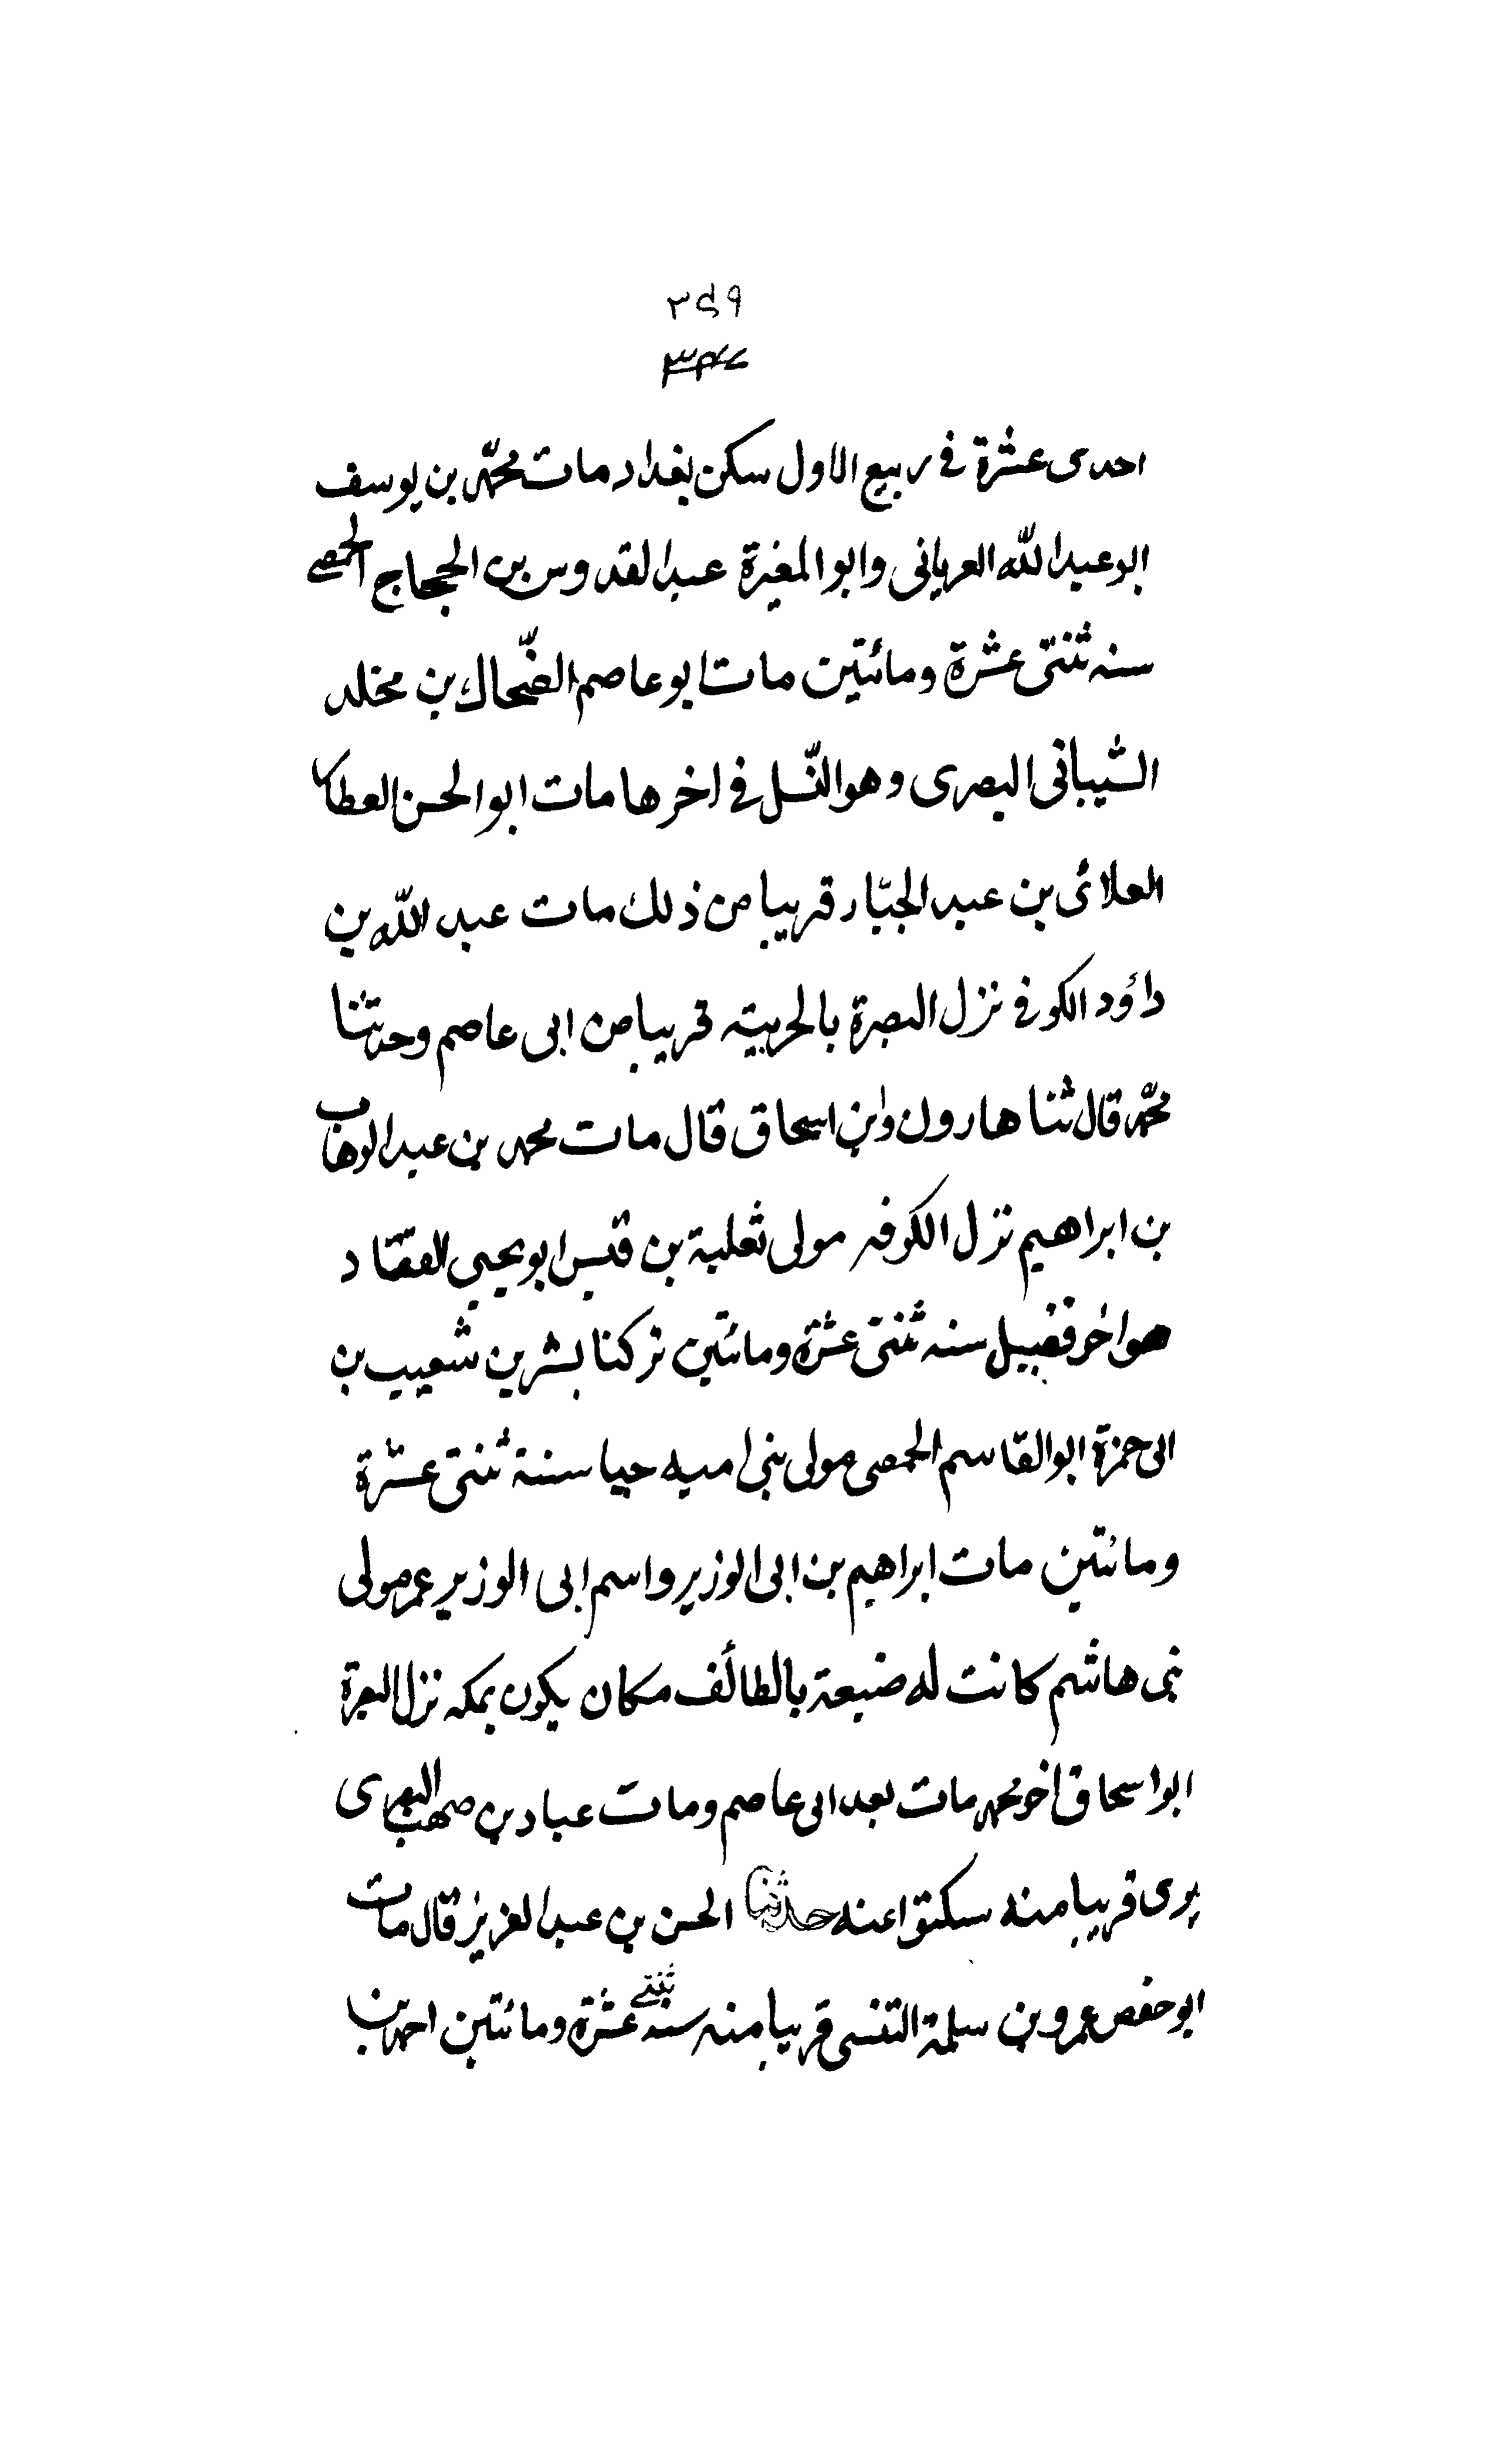 ٣٤٩
احدى عشرة فى ربيع الاول سكن بغداد مات محمّد بن يوسف
ابو عبد الله العريانى وابو المغيرة عبد القدوس بن الحجاج الحمصى
سنه ثنتى عشرة ومائتين مات ابو عاصم الضّحاك بن مخلد
الشيبانى البصرى وهو النّسل فى اخرها مات ابو الحسن العطار
العلائى بن عبد الجبّار قريبا من ذلك مات عبد الله بن
داؤد الكوفى نزل البصرة بالحربيته قريبا من ابى عاصم وحدثنا
محمّد قال ثنا هارون وابن اسحاق قال مات محمد بن عبد الوهاب
بن ابراهيم نزل الكوفه مولى ثعلبة بن قيس ابو يحيى الفقاد
هو اخر فضيل سنه ثنتى عشرة ومائتين تركنا بشر بن شعيب بن
ابى حمزة ابو القاسم الحمصى مولى بنى اميه حيا سنة ثنتى عشرة
ومائتين مات ابراهيم بن ابى الوزير واسم ابى الوزير عمر مولى
بنى هاشم كانت له ضيعة بالطائف مكان يكون بمكه نزل البصرة
ابو اسحاق اخو محمد مات بعد ابى عاصم ومات عباد بن صهيب البصرى
يرى قريبا منه سكتوا عنه حدثنا الحسن بن عبد العزيز قال مات
ابو حفص عمرو بن سلمة التنسى قريبا منه سنه ثنتى عشرة ومائتين احمد بن